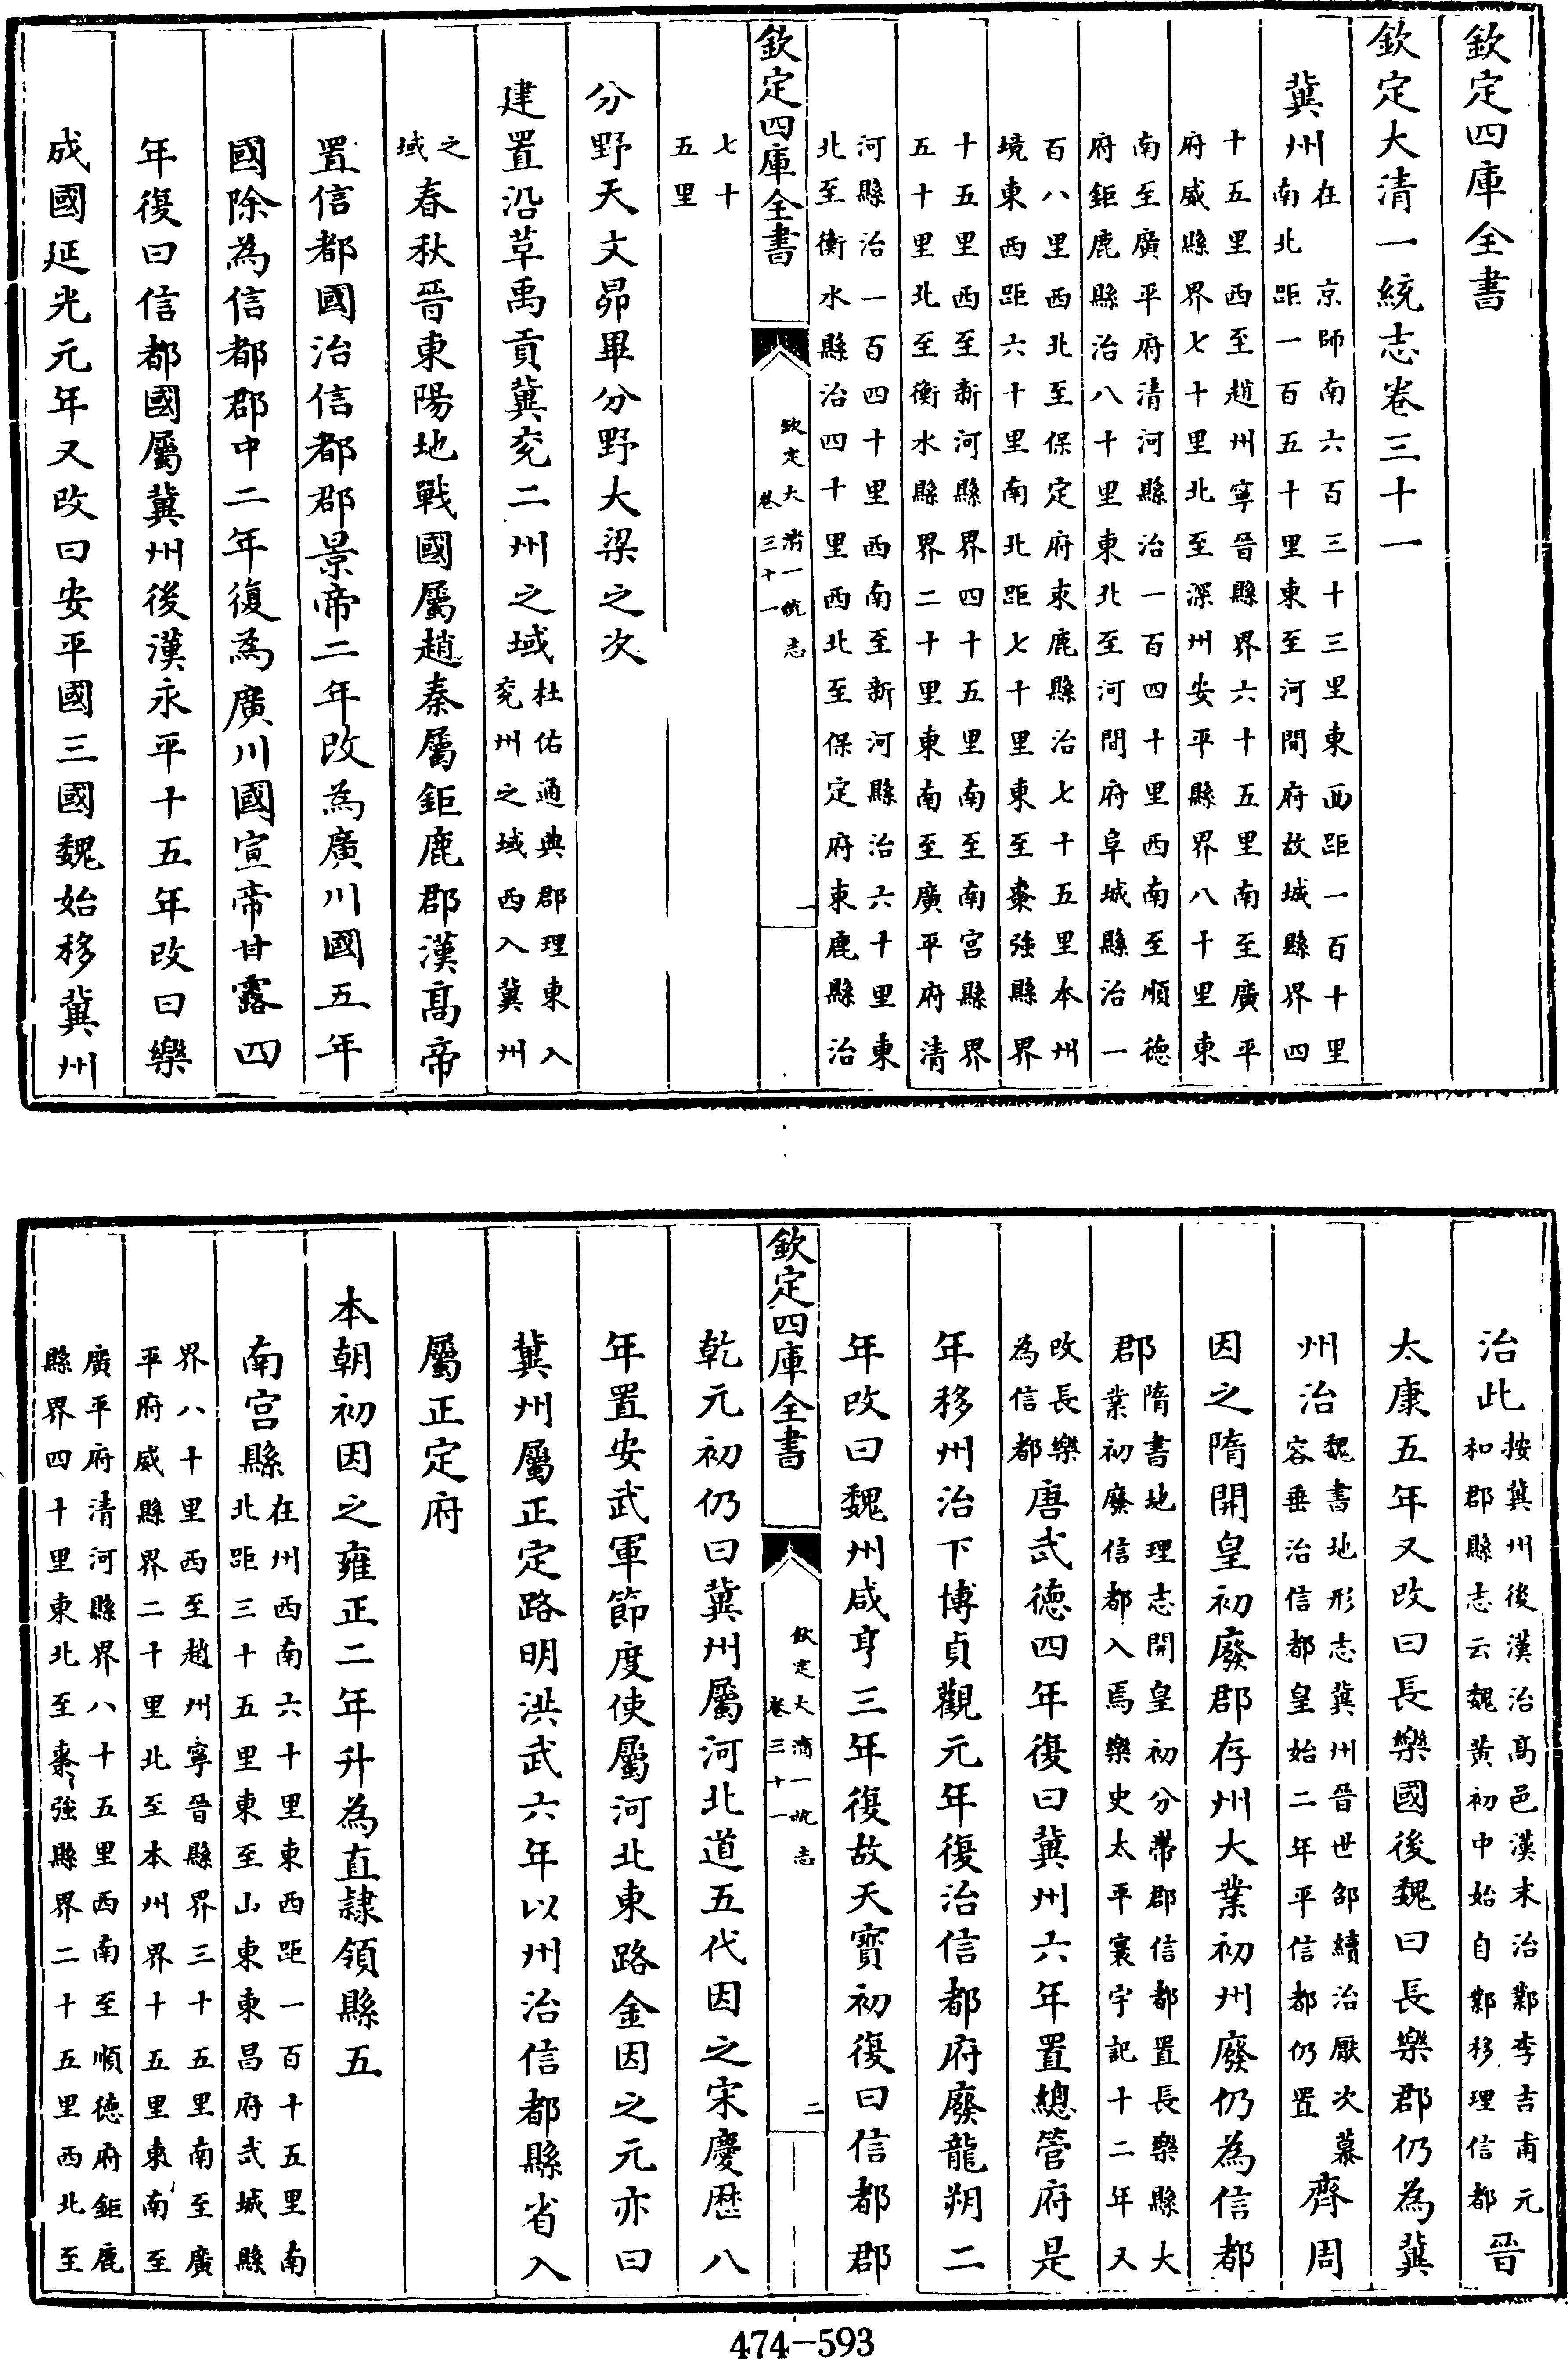 欽定四庫全書
欽定大清一統志卷三十一
冀州在京師南六百三十三里東西距一百十里南北距一百五十里東至河間府故城縣界四
十五里西至趙州寧晉縣界六十五里南至廣平府威縣界七十里北至深州安平縣界八十里東
南至廣平府清河縣治一百四十里西南至順德府鉅鹿縣治八十里東北至河間府阜城縣治一
百八里西北至保定府束鹿縣治七十五里本州境東西距六十里南北距七十里東至棗強縣界
十五里西至新河縣界四十五里南至南宮縣界五十里北至衡水縣界二十里東南至廣平府清
河縣治一百四十里西南至新河縣治六十里東北至衡水縣治四十里西北至保定府東鹿縣治
欽定四庫全書 欽定大清一統志卷三十一 一
七十五里
分野天文昴畢分野大梁之次
建置沿革禹貢冀兗二州之域杜佑通典郡理東入兗州之域西入冀州
之域春秋晉東陽地戰國屬趙秦屬鉅鹿郡漢高帝
置信都國治信都郡景帝二年改為廣川國五年
國除為信都郡中二年復為廣川國宣帝甘露四
年復曰信都國屬冀州後漢永平十五年改曰樂
成國延光元年又改曰安平國三國魏始移冀州
治此按冀州後漢治高邑漢末治鄴李吉甫元和郡縣志云魏黃初中始自鄴移理信都晉
太康五年又改曰長樂國後魏曰長樂郡仍為冀
州治魏書地形志冀州晉世邵續治厭次慕容垂治信都皇始二年平信都仍置齊周
因之隋開皇初廢郡存州大業初州廢仍為信都
郡隋書地理志開皇初分帶郡信都置長樂縣大業初廢信都入焉樂史太平寰宇記十二年又
改長樂為信都唐武德四年復曰冀州六年置總管府是
年移州治下博貞觀元年復治信都府廢龍朔二
年改曰魏州咸亨三年復故天寶初復曰信都郡
欽定四庫全書 欽定大清一統志卷三十一 二
乾元初仍曰冀州屬河北道五代因之宋慶曆八
年置安武軍節度使屬河北東路金因之元亦曰
冀州屬正定路明洪武六年以州治信都縣省入
屬正定府
本朝初因之雍正二年升為直隸領縣五
南宮縣在州西南六十里東西距一百十五里南北距三十五里東至山東東昌府武城縣
界八十里西至趙州寧晉縣界三十五里南至廣平府威縣界二十里北至本州界十五里東南至
廣平府清河縣界八十五里西南至順德府鉅鹿縣界四十里東北至棗強縣界二十五里西北至
474-593